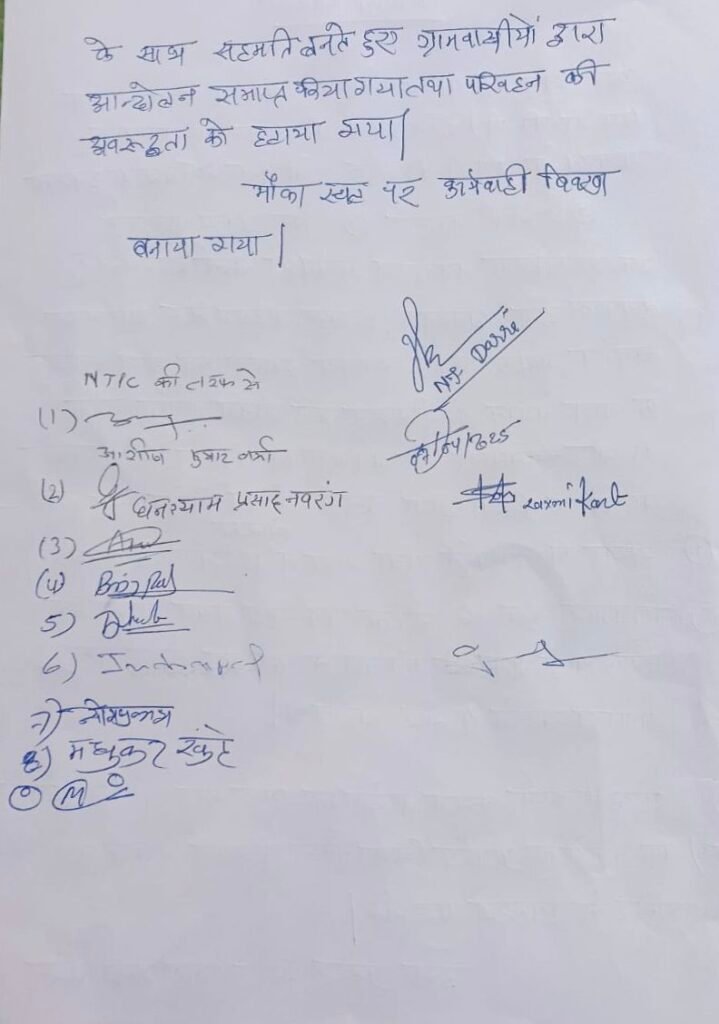 के साथ सहमति बनते हुए ग्रामवासीयों द्वारा
आन्दोलन समाप्त किया गया तथा परिवहन की
अवरूद्धता को हटाया गया|
मौका स्थल पर कार्यवाही विवरण
बनाया गया|
NTPC की तरफ से
(1)
आशीष कुमार
(2) घनश्याम प्रसाद नवरंग
(3)
(4)
5)
6)
7)
8) मधुकर
N.T. Darri
/04/2025
Laxmikant